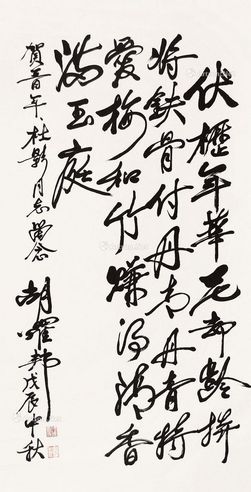 伏枥年华忘却龄拼
将铁骨付丹青丹青特
爱梅和竹赚得清香
满玉庭
贺晋年杜影同志留念
胡耀邦戊辰中秋